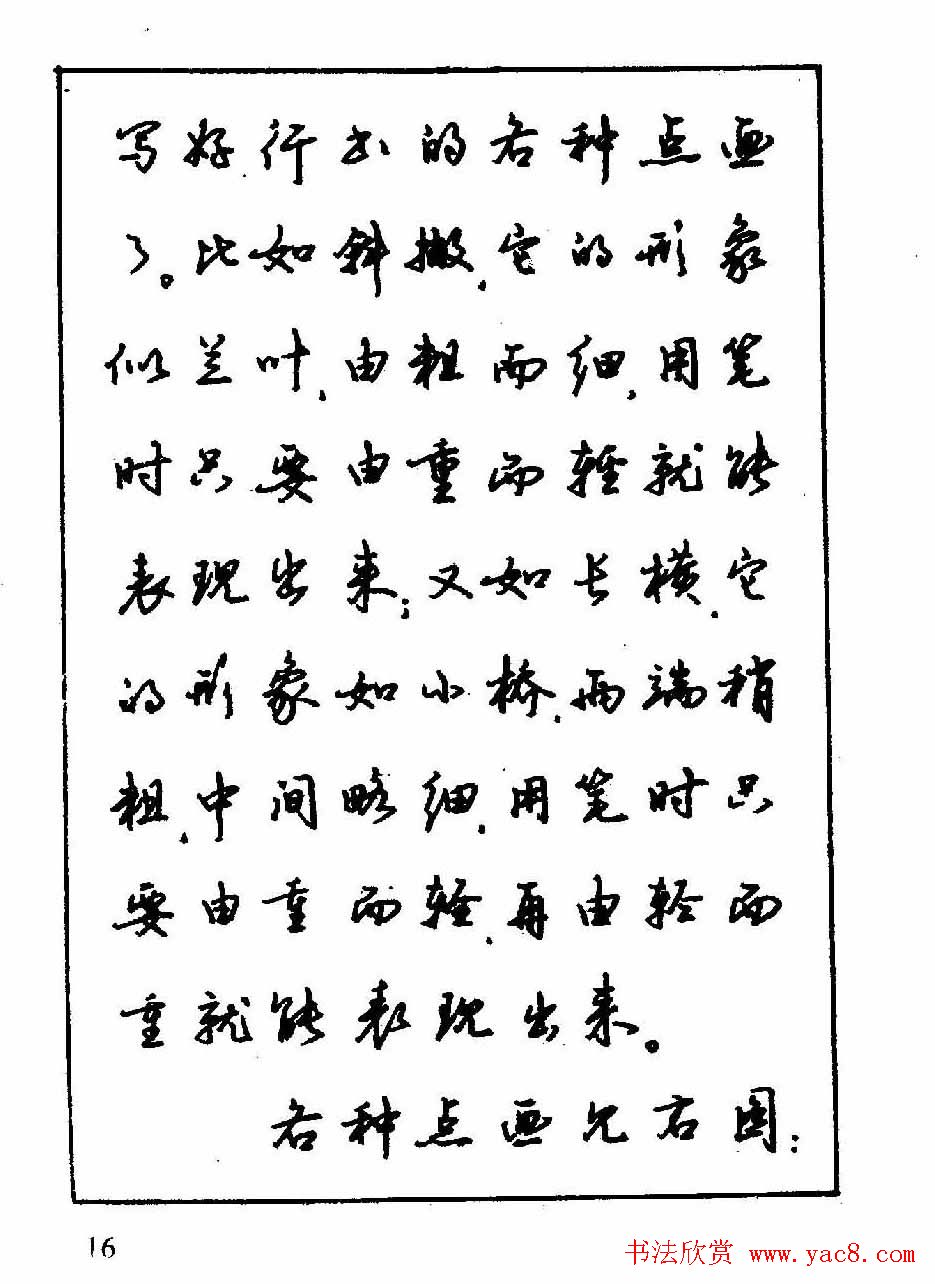 写好行书的各种点画
了。比如斜撇,它的形象
似兰叶,由粗而细,用笔
时只要由重而轻就能
表现出来;又如长横,它
的形象如小桥,两端稍
粗,中间略细,用笔时只
要由重而轻,再由轻而
重就能表现出来。
各种点画见右图:
16
书法欣赏 www.yac8.com